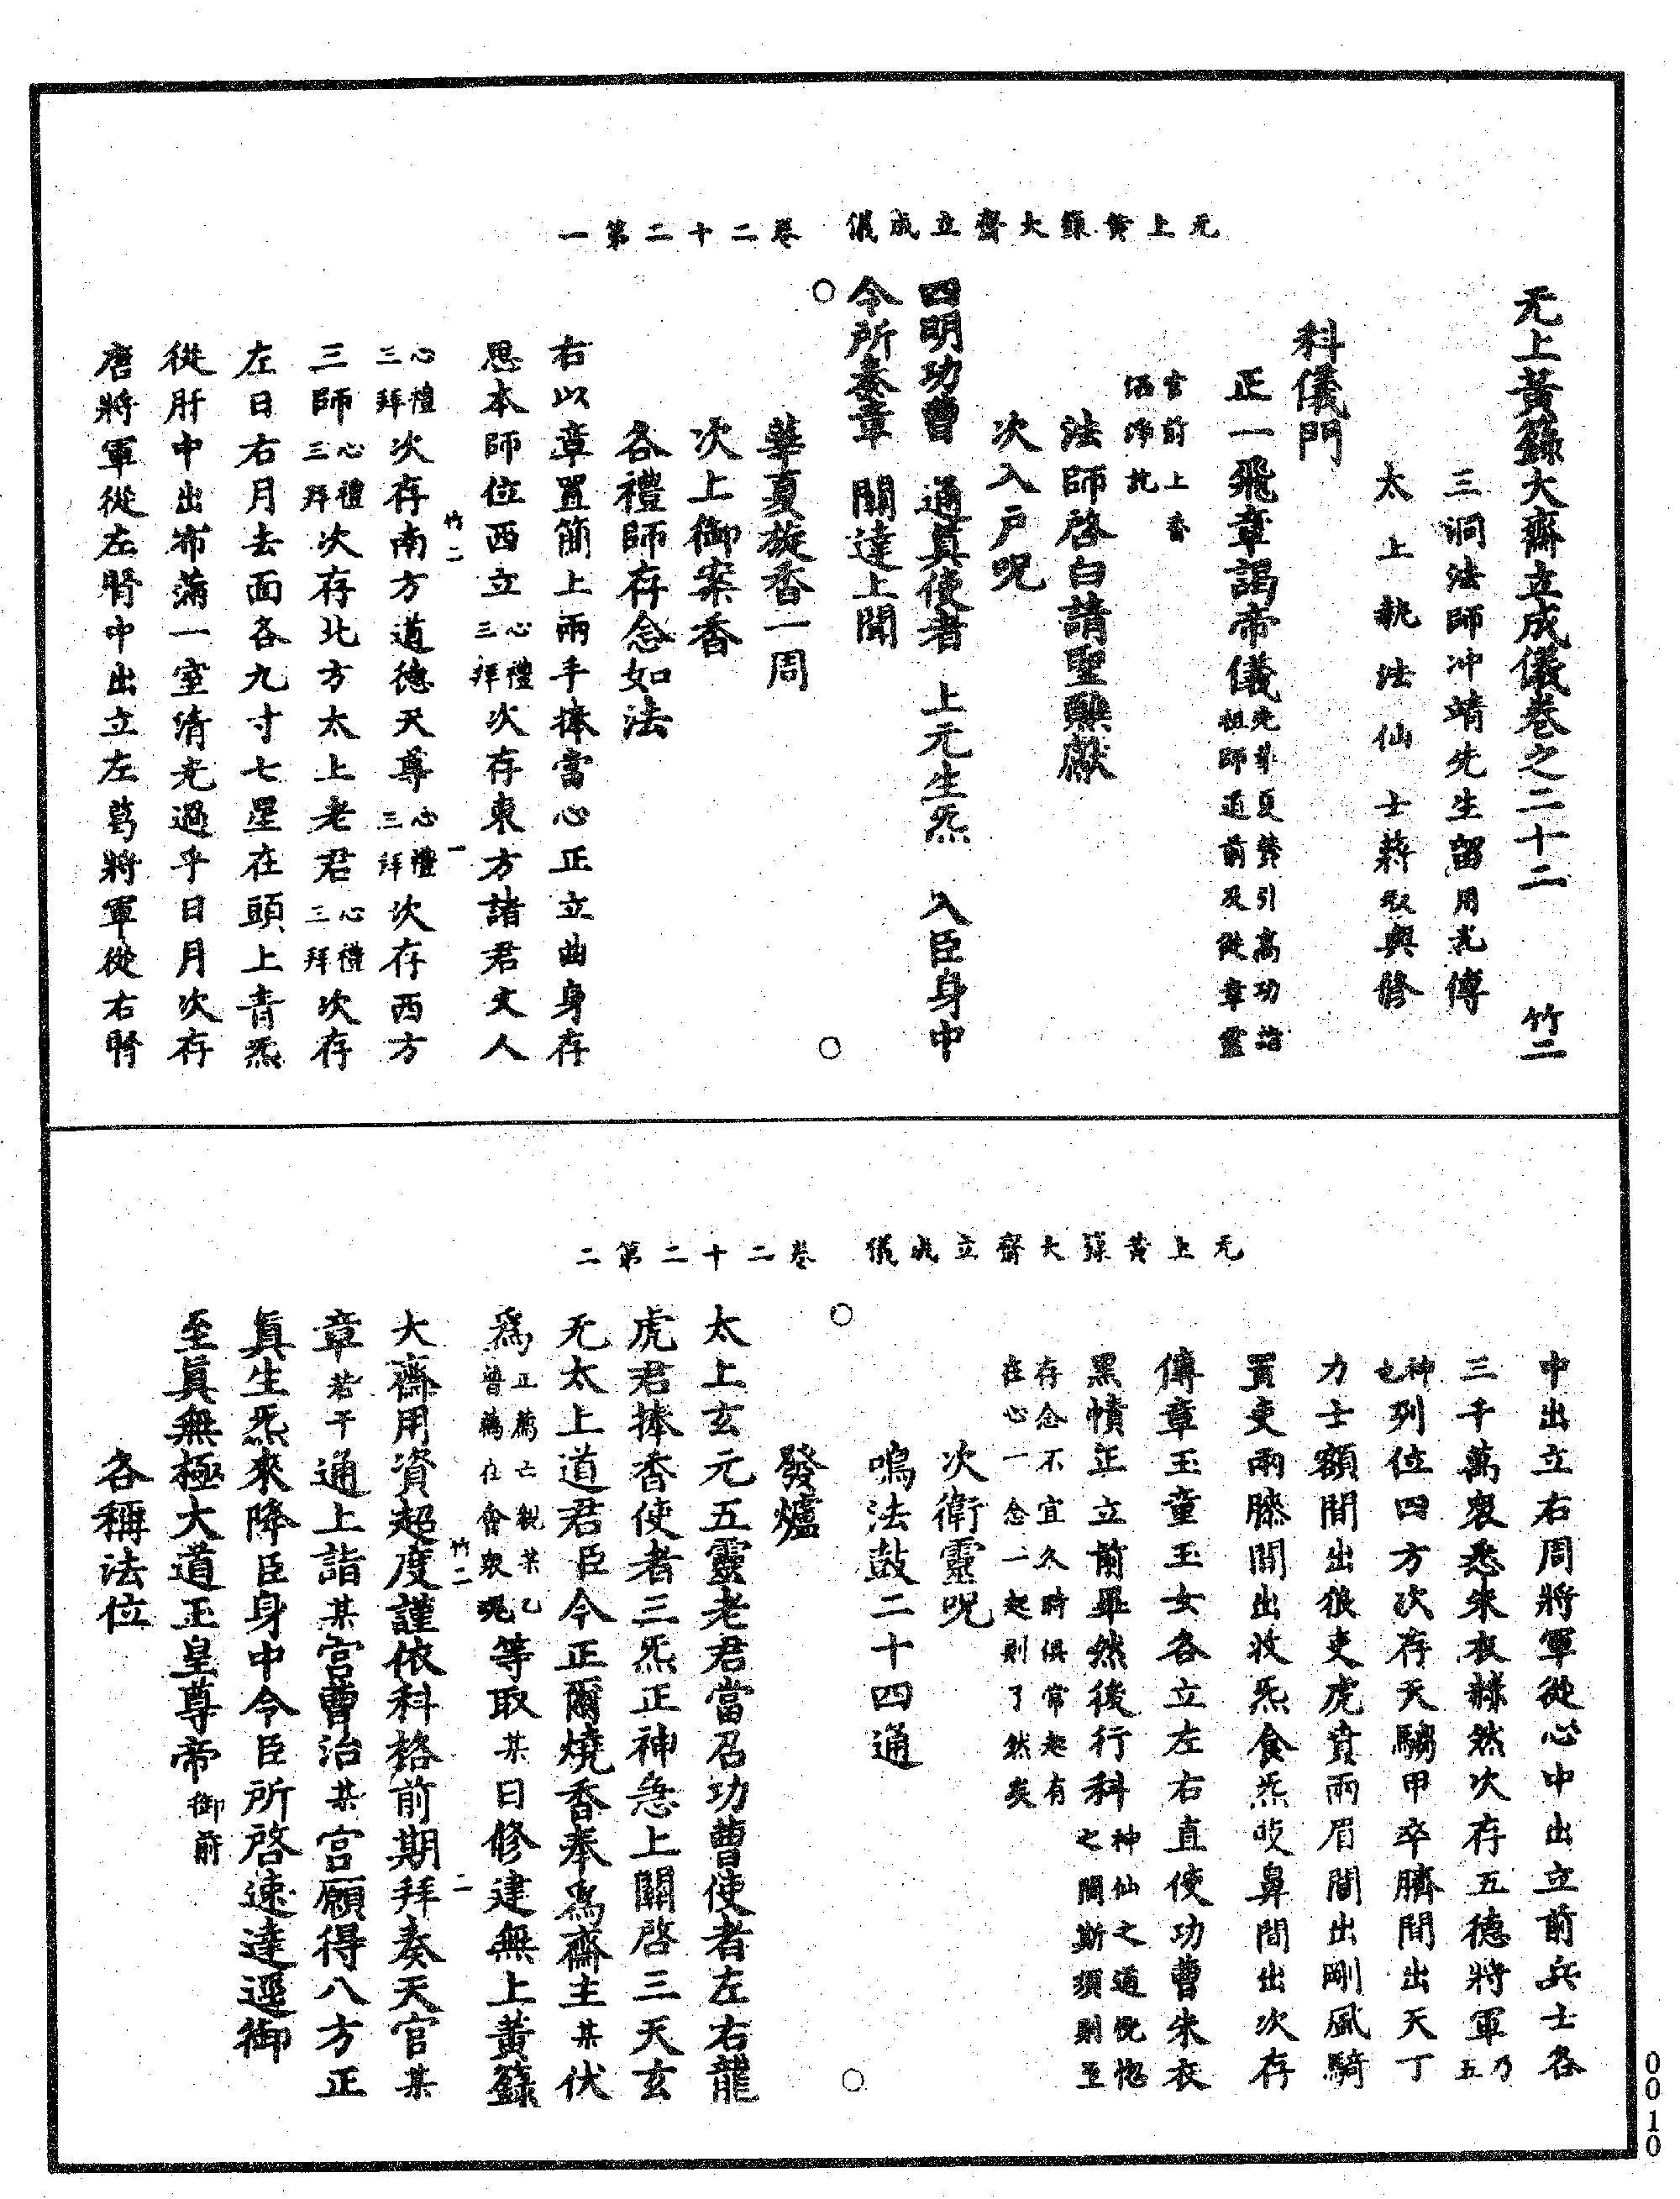 无上黃籙大齋立成儀 卷二十二第一
无上黃籙大齋立成儀卷之二十二 竹二
三洞法師冲靖先生留用光傳
太上執法仙士蔣叔輿修
科儀門
正一飛章謁帝儀先華夏贊引高功詣祖師遒前及従章靈
官前上香洒淨訖
法師啓白請聖獻
次入戶呪
四明功曹 通眞使者 上元生炁 入臣身中
今所奏章 關達上聞
華夏旋香一周
次上御案香
各禮師存念如法
右以章置簡上兩手捧當心正立曲身存
思本師位西立心禮三拜次存東方諸君丈人
心禮三拜次存南方道德天尊心禮三拜次存西方
三師心禮三拜次存北方太上老君心禮三拜次存
左日右月去面各九寸七星在頭上青炁
從肝中出布滿一室清光過乎日月次存
唐將軍從左腎中出立左葛將軍從右腎
竹二 一
无上黃籙大齋立成儀 卷二十二第二
中出立右周將軍從心中出立前兵士各
三千萬衆悉朱衣赫然次存五德將軍乃五
神也列位四方次存天騶甲卒臍間出天丁
力士額間出狼吏虎賁兩眉間出剛風騎
置吏兩膝間出收炁食炁吏鼻間出次存
傳章玉童玉女各立左右直使功曹朱衣
黑幘正立前畢然後行科神仙之道恍惚之間斯須則至
存念不宜久時俱常起有在心一念一起則了然矣
次衛靈呪
鳴法鼓二十四通
發爐
太上玄元五靈老君當召功曹使者左右龍
虎君捧香使者三炁正神急上關啓三天玄
无太上道君臣今正爾燒香奉爲齋主某伏
爲正薦亡親某乙普薦在會衆魂等取某日修建無上黃籙
大齋用資超度謹依科格前期拜奏天官某
章若干通上詣某宮曹治某宮願得八方正
眞生炁來降臣身中令臣所啓速達逕御
至眞無極大道玉皇尊帝御前
各稱法位
竹二 二
0010